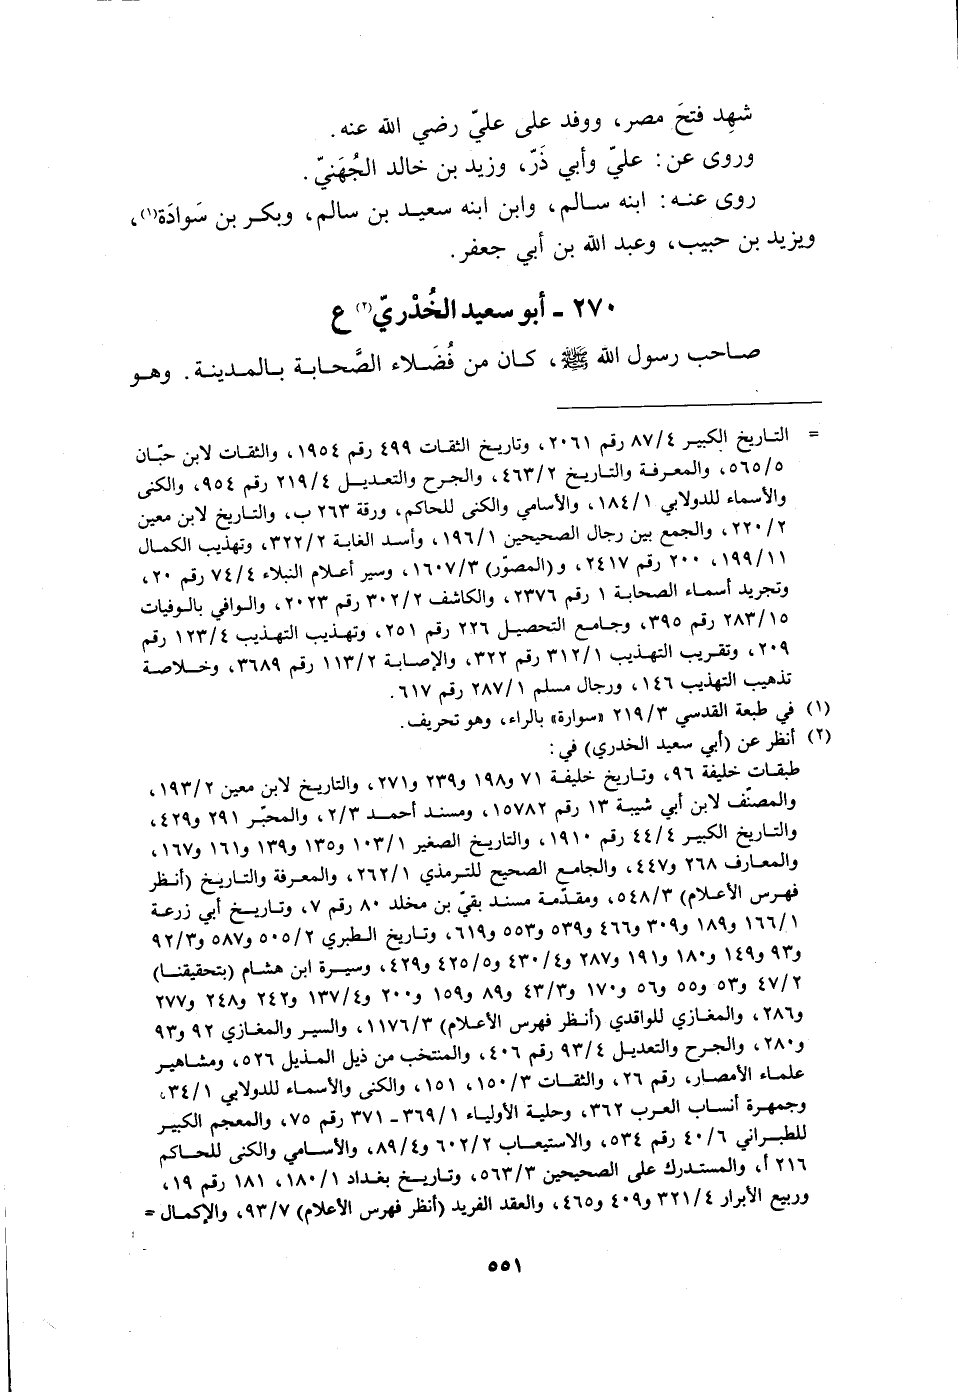 شهِد فتحَ مصر، ووفد على عليّ رضي الله عنه.
وروى عن: عليّ وأبي ذَرّ، وزيد بن خالد الجُهَنيّ.
روى عنه: ابنه سالم، وابن ابنه سعيد بن سالم، وبكر بن سَوادَة(١)،
ويزيد بن حبيب، وعبد الله بن أبي جعفر.
٢٧٠ ـ أبو سعيد الخُدْريّ(٢) ع
صاحب رسول الله ﷺ، كان من فُضَلاء الصَّحابة بالمدينة. وهو
= التاريخ الكبير ٨٧/٤ رقم ٢٠٦١، وتاريخ الثقات ٤٩٩ رقم ١٩٥٤، والثقات لابن حبّان
٥٦٥/٥، والمعرفة والتاريخ ٤٦٣/٢، والجرح والتعديل ٢١٩/٤ رقم ٩٥٤، والكنى
والأسماء للدولابي ١٨٤/١، والأسامي والكنى للحاكم، ورقة ٢٦٣ ب، والتاريخ لابن معين
٢٢٠/٢، والجمع بين رجال الصحيحين ١٩٦/١، وأسد الغابة ٣٢٢/٢، وتهذيب الكمال
١٩٩/١١، ٢٠٠ رقم ٢٤١٧، و(المصوّر) ١٦٠٧/٣، وسير أعلام النبلاء ٧٤/٤ رقم ٢٠،
وتجريد أسماء الصحابة ١ رقم ٢٣٧٦، والكاشف ٣٠٢/٢ رقم ٢٠٢٣، والوافي بالوفيات
٢٨٣/١٥ رقم ٣٩٥، وجامع التحصيل ٢٢٦ رقم ٢٥١، وتهذيب التهذيب ١٢٣/٤ رقم
٢٠٩، وتقريب التهذيب ٣١٢/١ رقم ٣٢٢، والإصابة ١١٣/٢ رقم ٣٦٨٩، وخلاصة
تذهيب التهذيب ١٤٦، ورجال مسلم ٢٨٧/١ رقم ٦١٧.
(١) في طبعة القدسي ٢١٩/٣ «سوارة» بالراء، وهو تحريف.
(٢) أنظر عن (أبي سعيد الخدري) في:
طبقات خليفة ٩٦، وتاريخ خليفة ٧١ و١٩٨ و٢٣٩ و٢٧١، والتاريخ لابن معين ١٩٣/٢،
والمصنّف لابن أبي شيبة ١٣ رقم ١٥٧٨٢، ومسند أحمد ٢/٣، والمحبّر ٢٩١ و٤٢٩،
والتاريخ الكبير ٤٤/٤ رقم ١٩١٠، والتاريخ الصغير ١٠٣/١ و١٣٥ و١٣٩ و١٦١ و١٦٧،
والمعارف ٢٦٨ و٤٤٧، والجامع الصحيح للترمذي ٢٦٢/١، والمعرفة والتاريخ (أنظر
فهرس الأعلام) ٥٤٨/٣، ومقدّمة مسند بقيّ بن مخلد ٨٠ رقم ٧، وتاريخ أبي زرعة
١٦٦/١ و١٨٩ و٣٠٩ و٤٦٦ و٥٣٩ و٥٥٣ و٦١٩، وتاريخ الطبري ٥٠٥/٢ و٥٨٧ و٩٢/٣
و٩٣ و١٤٩ و١٨٠ و١٩١ و٢٨٧ و٤٣٠/٤ و٤٢٥/٥ و٤٢٩، وسيرة ابن هشام (بتحقيقنا)
٤٧/٢ و٥٣ و٥٥ و٥٦ و١٧٠ و٤٣/٣ و٨٩ و١٥٩ و٢٠٠ و١٣٧/٤ و٢٤٢ و٢٤٨ و٢٧٧
و٢٨٦، والمغازي للواقدي (أنظر فهرس الأعلام) ١١٧٦/٣، والسير والمغازي ٩٢ و٩٣
و٢٨٠، والجرح والتعديل ٩٣/٤ رقم ٤٠٦، والمنتخب من ذيل المذيل ٥٢٦، ومشاهير
علماء الأمصار، رقم ٢٦، والثقات ١٥٠/٣، ١٥١، والكنى والأسماء للدولابي ٣٤/١،
وجمهرة أنساب العرب ٣٦٢، وحلية الأولياء ٣٦٩/١ ـ ٣٧١ رقم ٧٥، والمعجم الكبير
للطبراني ٤٠/٦ رقم ٥٣٤، والاستيعاب ٦٠٢/٢ و٨٩/٤، والأسامي والكنى للحاكم
٢١٦ أ، والمستدرك على الصحيحين ٥٦٣/٣، وتاريخ بغداد ١٨٠/١، ١٨١ رقم ١٩،
وربيع الأبرار ٣٢١/٤ و٤٠٩ و٤٦٥، والعقد الفريد (أنظر فهرس الأعلام) ٩٣/٧، والإكمال =
٥٥١